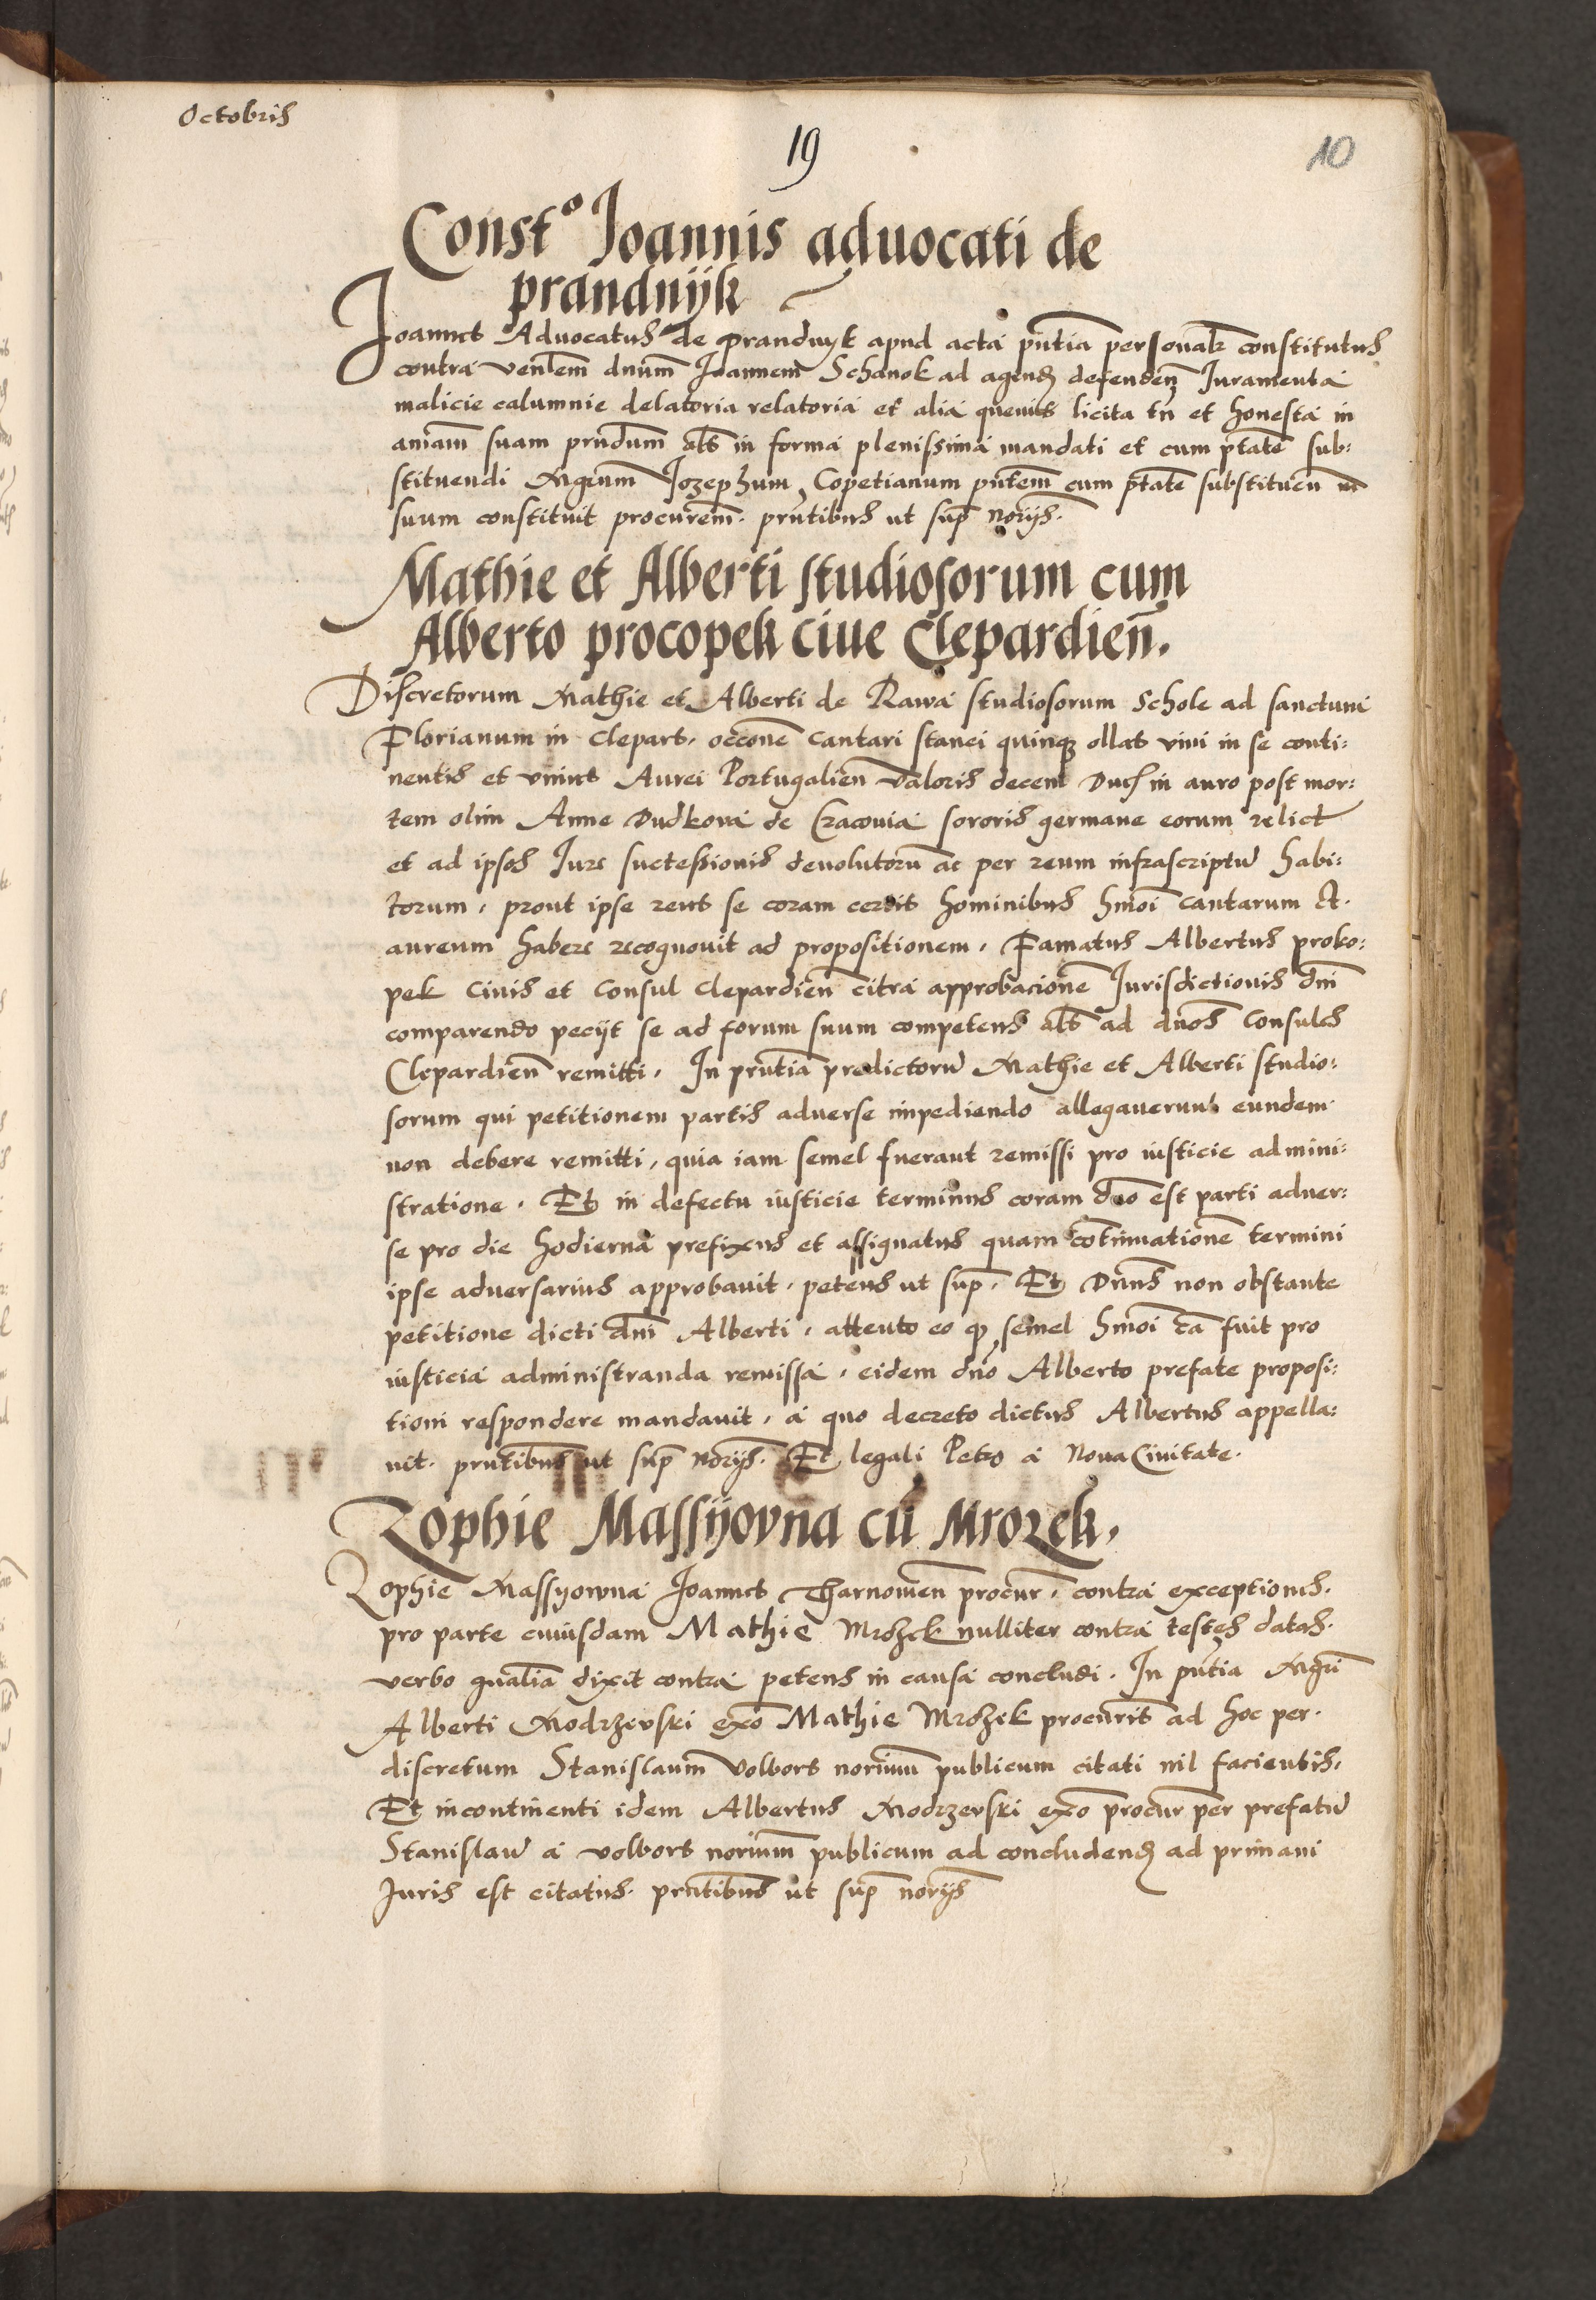 Octobris
19
10
Const° Joannis aduocati de
prandnijk
Joannes Aduocatus de prandnyk apud acta pn̄tia personal͛r constitutus
contra ven̄lem dnūm Joannem Schanok ad agend̄ defenden̄ Juramenta
malicie calumnie delatoria relatoria et alia queuis licita tn̄ et honesta in
aniām suam prn̄dum alt̄s in forma plenissima mandati et cum ptāte sub:
stituendi Mgrūm Jozephum Copetianum pn̄tem cum ptāte substituen̄
suum constituit procurēm. prn̄tibus ut sup̄ norijs.
Mathie et Alberti studiosorum cum
Alberto procopek ciue Clepardien̄.
Discretorum Mathie et Alberti de Rawa studiosorum Schole ad sanctum
Florianum in Clepart. occōne Cantari stanei quinqȝ ollas vini in se conti:
nentis et vnius Aurei Portugalien̄ valoris decem Duc̄ in auro post mor:
tem olim Anne Dudkova de Cracouia sororis germane eorum relict
et ad ipsos Jure successionis deuolutorū ac per reum infrascriptū habi:
torum. prout ipse reus se coram certis hominibus hm̄oi Cantarum et
aureum habere recognouit ad propositionem. Famatus Albertus proko:
pek Ciuis et Consul Clepardien̄ citra approbacionē Jurisdictionis dn̄i
comparendo pecijt se ad forum suum competens alt̄s ad dnōs Consules
Clepardien̄ remitti. In prn̄tia predictorū Mathie et Alberti studio:
sorum qui petitionem partis aduerse impediendo allegauerunt eundem
non debere remitti, quia iam semel fuerant remissi pro iusticie admini:
stratione. Et in defectu iusticie terminus coram dn̄o est parti aduer:
se pro die hodierna prefixus et assignatus quam cotīnuationē termini
ipse aduersarius approbauit. petens ut sup̄. Et Dnūs non obstante
petitione dicti dn̄i Alberti. attento eo qꝫ semel hm̄oi cā fuit pro
iusticia administranda remissa. eidem dn̄o Alberto prefate proposi:
tioni respondere mandauit. a quo decreto dictus Albertus appella:
uit. prn̄tibus ut sup̄ norijs. Et legali Petro a Noua Ciuitate.
Zophie Massijovna cū Mrozek.
Zophie Massyowna Joannes Tharnowen̄ procur̄. contra exceptiones.
pro parte cuiusdam Mathie Mrozek nulliter contra testes datas.
verbo gnālia dixit contra petens in causa concludi. In pn̄tia Mgrī
Alberti Modrzevski exō Mathie Mrozek procurīs ad hoc per
discretum Stanislaum Volbors noriūm publicum citati nil facientis.
Et incontinenti idem Albertus Modrzevski exō procur̄ per prefatū
Stanislaū a volbors noriūm publicum ad concludend̄ ad primam
Juris est citatus. prn̄tibus ut sup̄ norijs